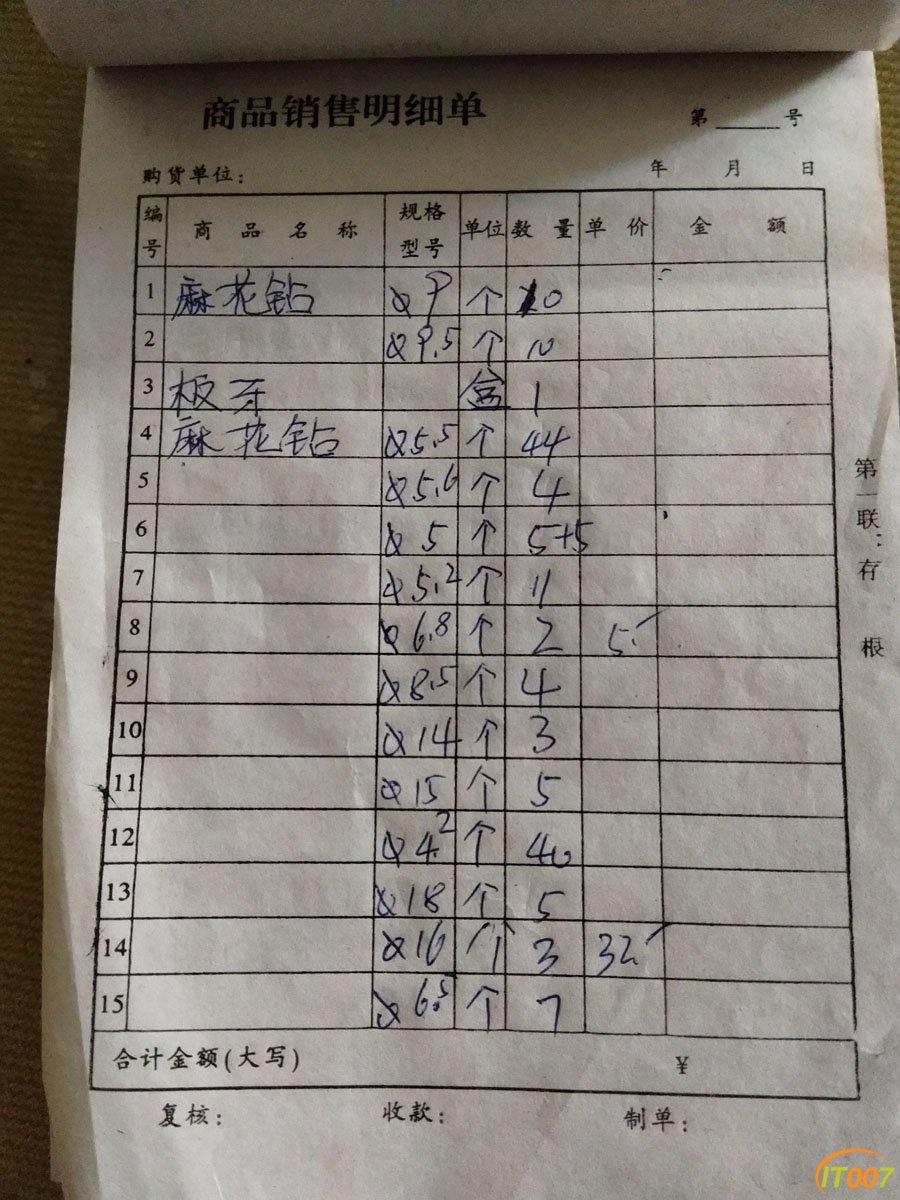 商品销售明细单
第 号
购货单位： 年 月 日
编号 商品名称 规格型号 单位 数量 单价 金额
1 麻花钻 ⌀9 个 10
2 ⌀9.5 个 10
3 板牙 盒 1
4 麻花钻 ⌀5.5 个 44
5 ⌀5.6 个 4
6 ⌀5 个 5+5
7 ⌀5.2 个 11
8 ⌀6.8 个 2 5.-
9 ⌀8.5 个 4
10 ⌀14 个 3
11 ⌀15 个 5
12 ⌀4.2 个 40
13 ⌀18 个 5
14 ⌀16 个 3 32.-
15 ⌀6.5 个 7
合计金额(大写) ¥
复核： 收款： 制单：
第一联：存根
IT007